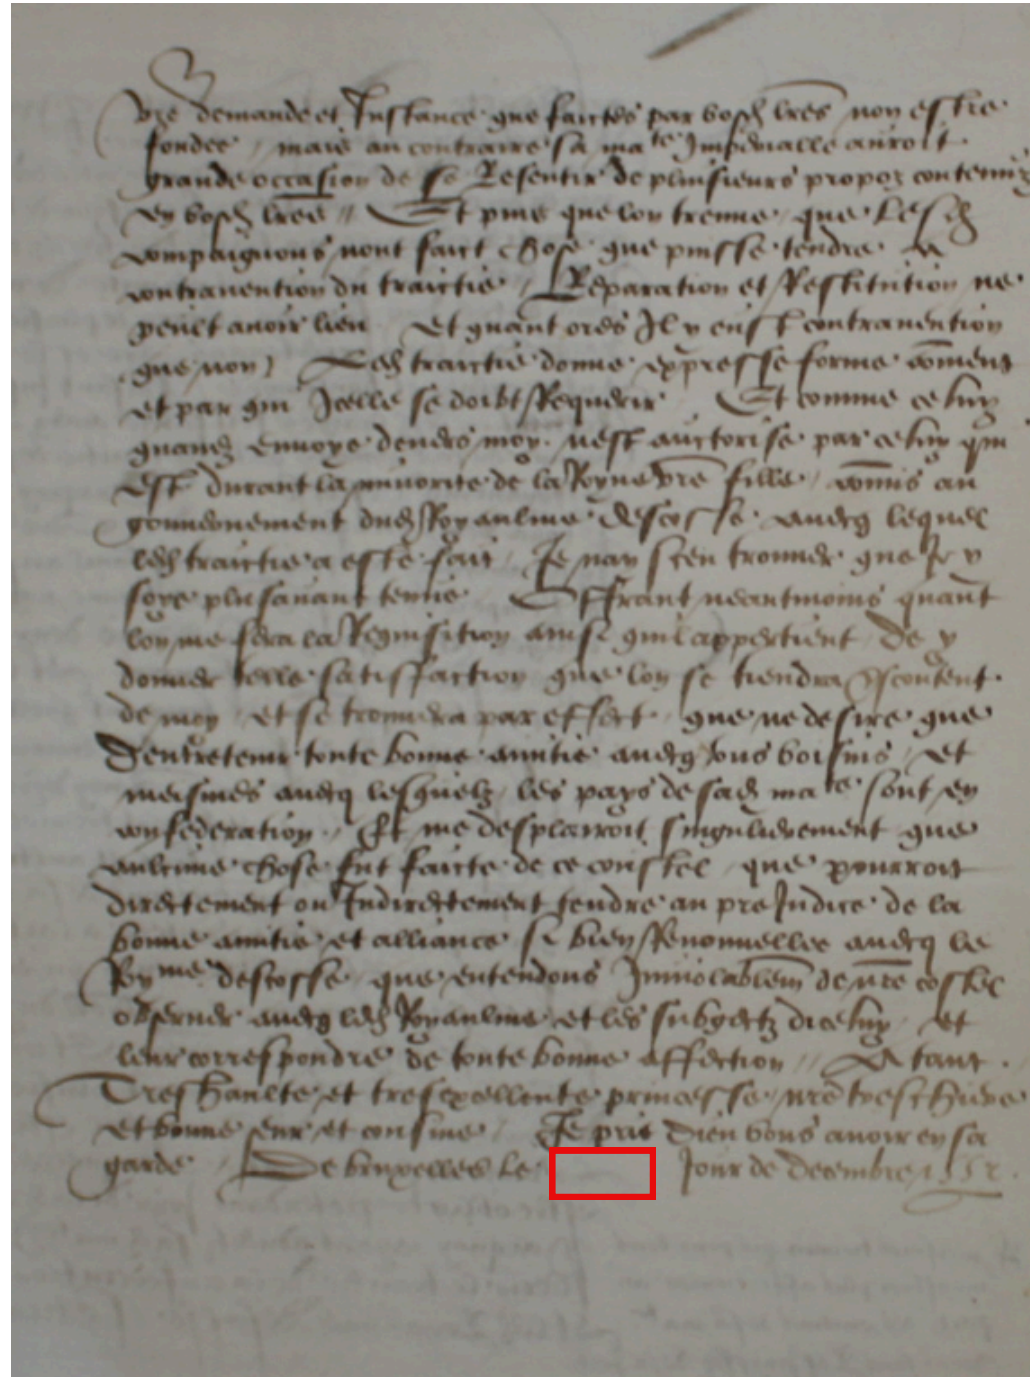 vre demande et Instance que faictes par vosd lres non estre
fondee / mais au contraire sa ma.te Imperialle auroit
grande occasion de se Resentir de plusieurs propoz contenuz
en vosd lres // Et puis que lon treuve que lesd
compaignons nont faict chose que puisse tendre A
contravention du traictie // Reparation et Restitution ne
peult avoir lieu Et quant ores Il y eust contravention
que non / Led traictie donne expresse forme comment
et par qui Icelle se doibt Requerir Et comme celuy
quavez envoye devers moy nest auctorise par celuy qui
est durant la minorite de la Royne vre fille / commis au
gouvernement dud Royaulme descosse avecq lequel
led traictie a este fait / Je nay sceu trouver que Je y
soye plusavant tenue Offrant neantmoins quant
lon me fera la Requisition ainsi quil appertient De y
donner telle satisfaction que lon se tiendra content
de moy / et se trouvera par effect que ne desire que
dentretenir toute bonne amitie avecq tous voisins / et
meismes avecq lesquelz les pays de sad ma.te sont en
confederation // Et me desplairoit singulierement que
aulcune chose fut faicte de ce coustel que pourroit
directement ou Indirectement tendre au preJudice de la
bonne amitie et alliance si bien Renouvellee avecq le
Roy.me descosse que entendons Inviolablem de nre costel
observer avecq led Royaulme et les subgectz dicelluy / et
leur correspondre de toute bonne affection // A tant
Treshaulte et tresexcellente princesse nre treschiere
et bonne seur et cousine / Je prie Dieu vous avoir en sa
garde De bruxelles le Jour de decembre